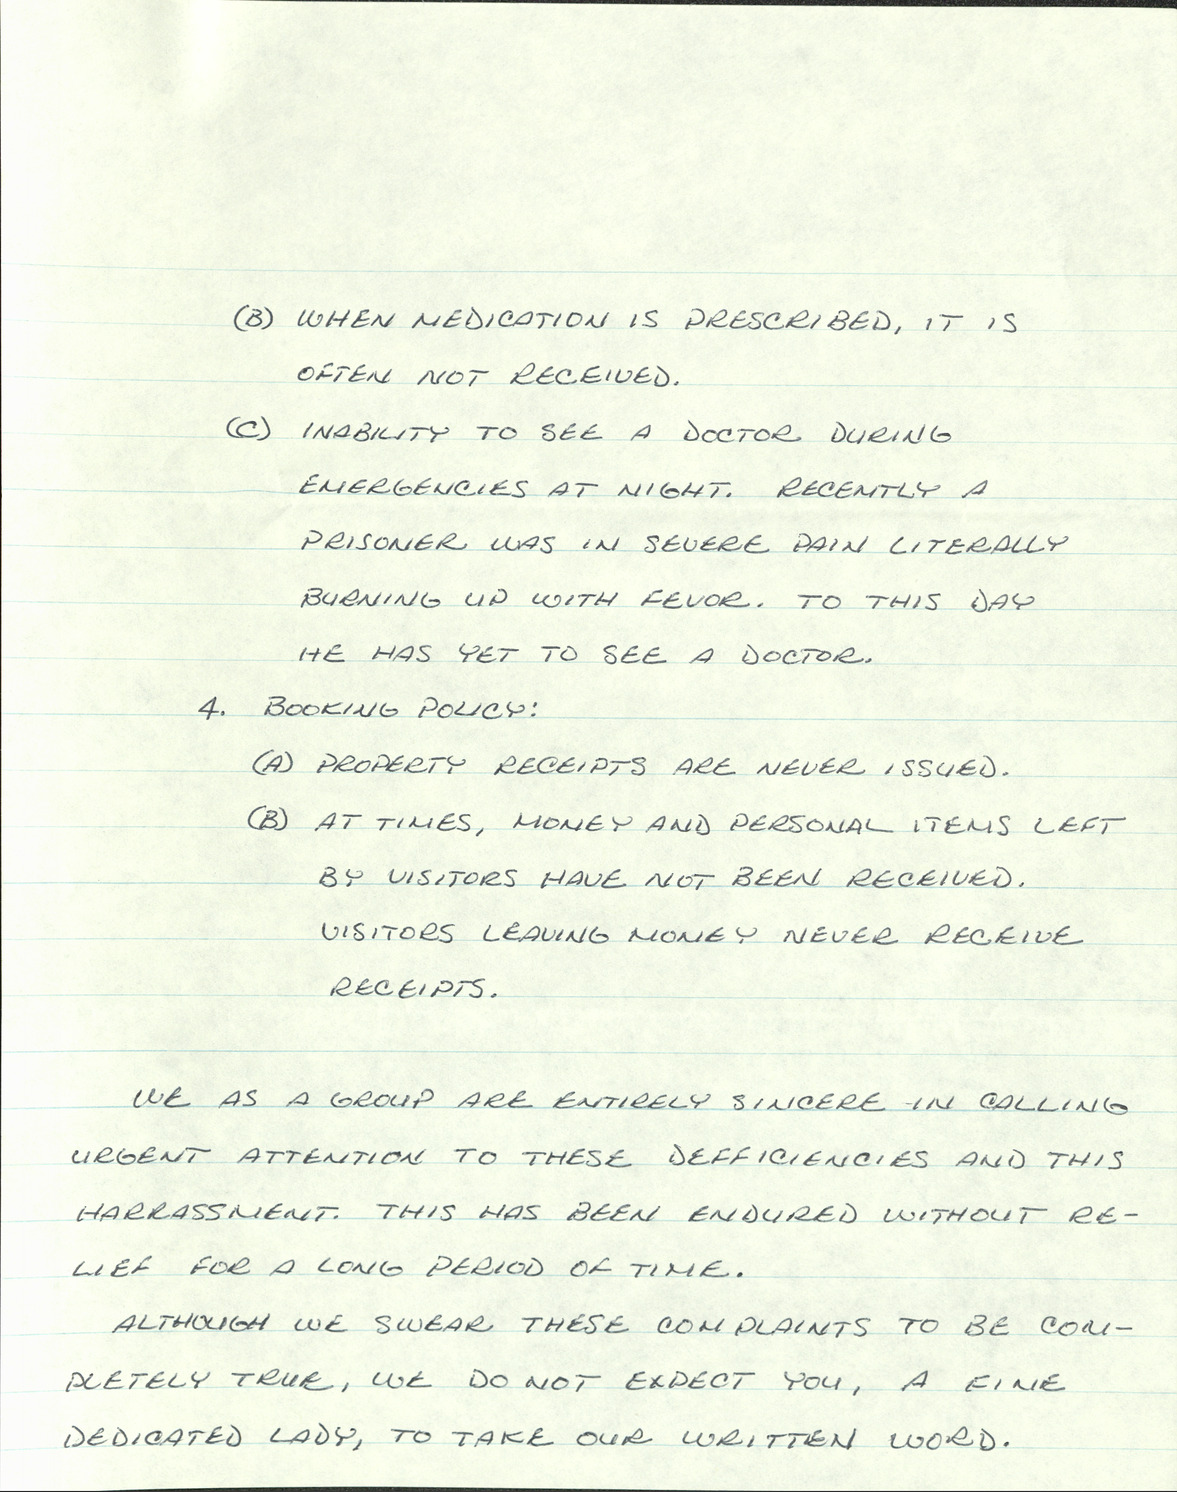 (B) WHEN MEDICATION IS PRESCRIBED, IT IS
OFTEN NOT RECEIVED.
(C) INABILITY TO SEE A DOCTOR DURING
EMERGENCIES AT NIGHT. RECENTLY A
PRISONER WAS IN SEVERE PAIN LITERALLY
BURNING UP WITH FEVOR. TO THIS DAY
HE HAS YET TO SEE A DOCTOR.
4. BOOKING POLICY:
(A) PROPERTY RECEIPTS ARE NEVER ISSUED.
(B) AT TIMES, MONEY AND PERSONAL ITEMS LEFT
BY VISITORS HAVE NOT BEEN RECEIVED.
VISITORS LEAVING MONEY NEVER RECEIVE
RECEIPTS.
WE AS A GROUP ARE ENTIRELY SINCERE IN CALLING
URGENT ATTENTION TO THESE DEFFICIENCIES AND THIS
HARRASSMENT. THIS HAS BEEN ENDURED WITHOUT RE-
LIEF FOR A LONG PERIOD OF TIME.
ALTHOUGH WE SWEAR THESE COMPLAINTS TO BE COM-
PLETELY TRUE, WE DO NOT EXPECT YOU, A FINE
DEDICATED LADY, TO TAKE OUR WRITTEN WORD.